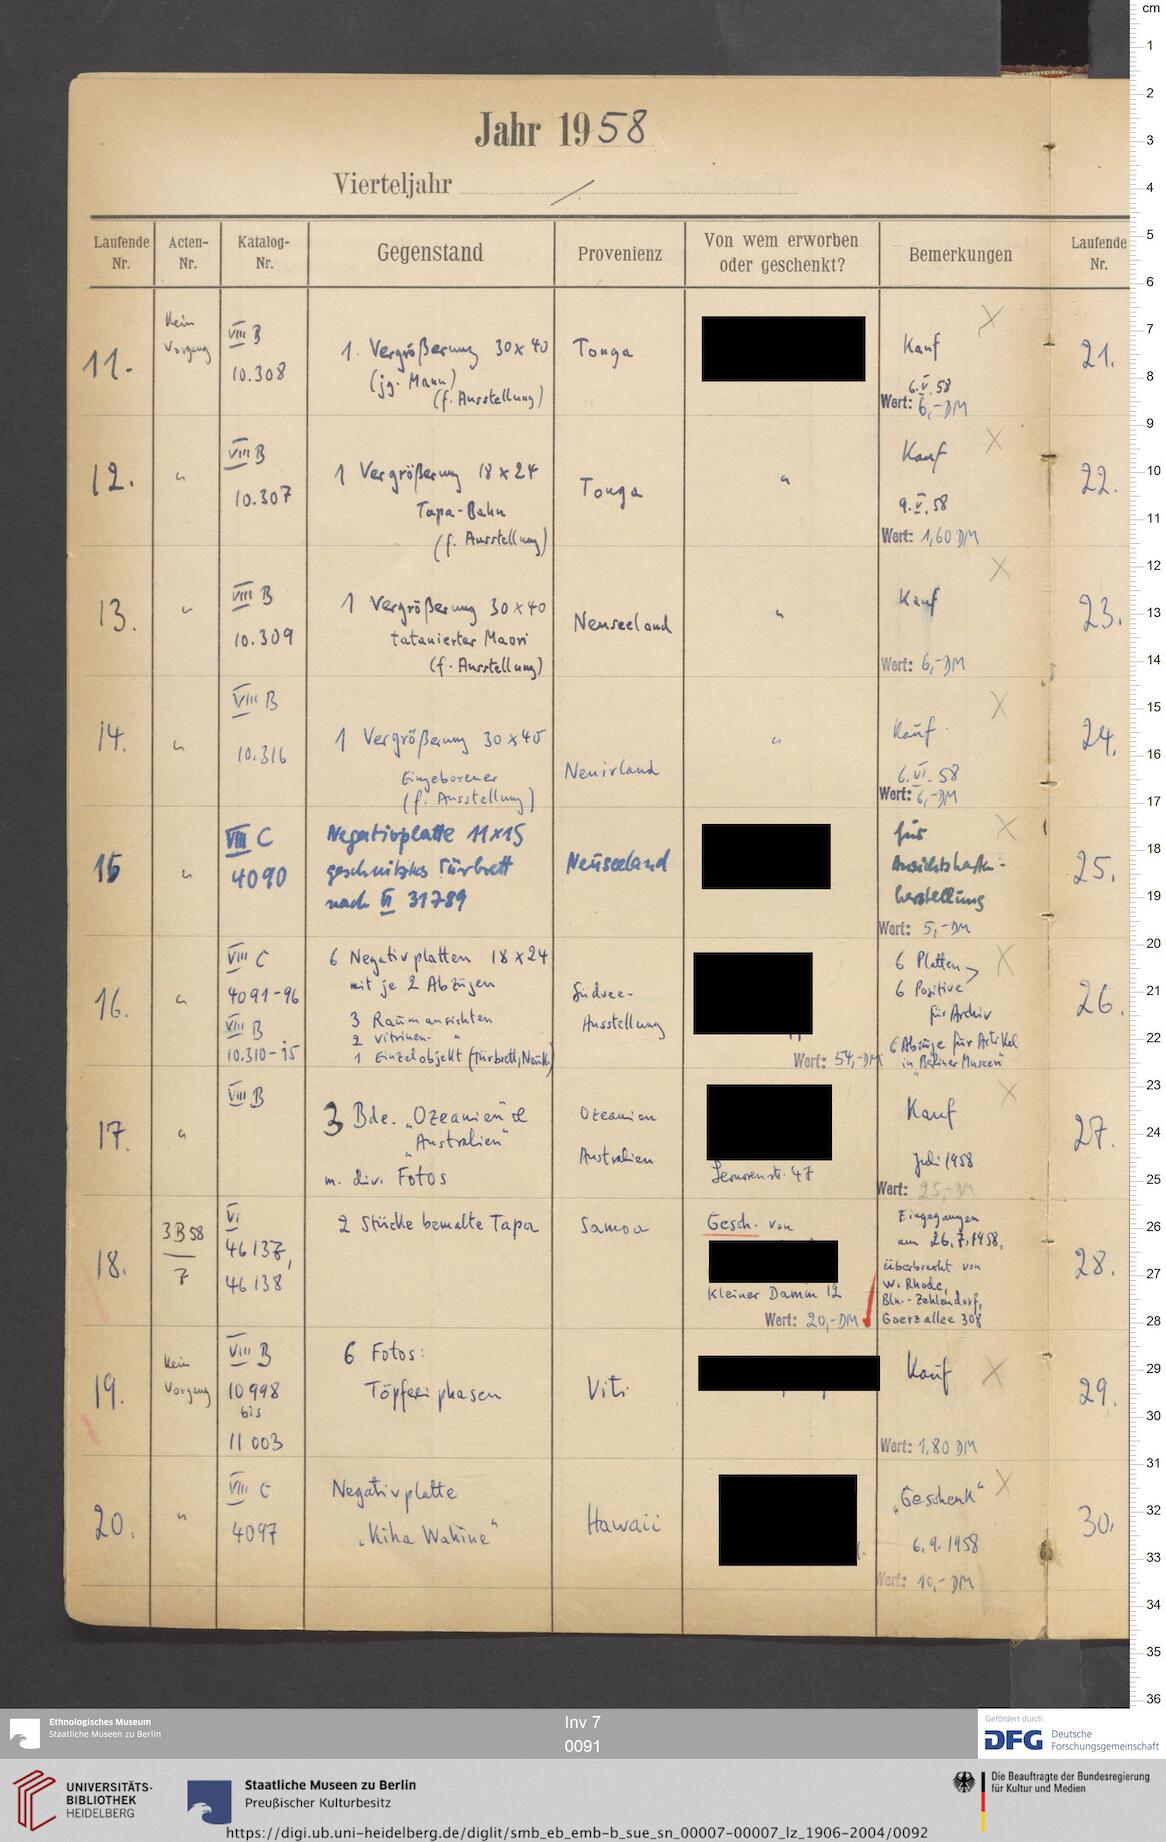 Jahr 1958
Vierteljahr /
Laufende Nr.
Acten-Nr.
Katalog-Nr.
Gegenstand
Provenienz
Von wem erworben oder geschenkt?
Bemerkungen
Laufende Nr.
11.
Kein Vorgang
VIII B
10.308
1. Vergrößerung 30x40
(jg. Mann)
(f. Ausstellung)
Tonga
Kauf
6.V.58
Wert: 6,-DM
X
21.
12.
"
VIII B
10.307
1 Vergrößerung 18x24
Tapa-Bahn
(f. Ausstellung)
Tonga
"
Kauf
9.V.58
Wert: 1,60 DM
X
22.
13.
"
VIII B
10.309
1 Vergrößerung 30x40
tatauierter Maori
(f. Ausstellung)
Neuseeland
"
Kauf
Wert: 6,-DM
X
23.
14.
"
VIII B
10.316
1 Vergrößerung 30x40
Eingeborener
(f. Ausstellung)
Neuirland
"
Kauf
6.VI.58
Wert: 6,-DM
X
24.
15
"
VIII C
4090
Negativplatte 11x15
geschnitztes Türbrett
nach VI 31789
Neuseeland
für
Ansichtskarten-
herstellung
Wert: 5,-DM
X
25.
16.
"
VIII C
4091-96
VIII B
10.310-15
6 Negativplatten 18x24
mit je 2 Abzügen
3 Raumansichten
2 Vitrinen- "
1 Einzelobjekt (Türbrett, Neus.)
Südsee-
Ausstellung
Wert: 54,-DM
6 Platten
6 Positive
für Archiv
6 Abzüge für Artikel
in "Berliner Museen"
X
26.
17.
"
VIII B
3 Bde. "Ozeanien" &
"Australien"
m. div. Fotos
Ozeanien
Australien
47
Kauf
Juli 1958
Wert: 25,-DM
X
27.
18.
3 B 58
7
VI
46137,
46138
2 Stücke bemalte Tapa
Samoa
Gesch. von
Kleiner Damm 12
Wert: 20,-DM
Eingegangen
am 26.7.1958,
überbracht von
W. Rhode,
Bln.-Zehlendorf,
Goerzallee 308
28.
19.
Kein Vorgang
VIII B
10998
bis
11003
6 Fotos:
Töpfereiphasen
Viti
Kauf
Wert: 1,80 DM
X
29.
20.
"
VIII C
4097
Negativplatte
"Kiha Wahine"
Hawaii
"Geschenk"
6.9.1958
Wert: 10,-DM
X
30.
cm
1
2
3
4
5
6
7
8
9
10
11
12
13
14
15
16
17
18
19
20
21
22
23
24
25
26
27
28
29
30
31
32
33
34
35
36
Ethnologisches Museum
Staatliche Museen zu Berlin
Inv 7
0091
Gefördert durch
DFG Deutsche
Forschungsgemeinschaft
UNIVERSITÄTS-
BIBLIOTHEK
HEIDELBERG
Staatliche Museen zu Berlin
Preußischer Kulturbesitz
Die Beauftragte der Bundesregierung
für Kultur und Medien
https://digi.ub.uni-heidelberg.de/diglit/smb_eb_emb-b_sue_sn_00007-00007_lz_1906-2004/0092